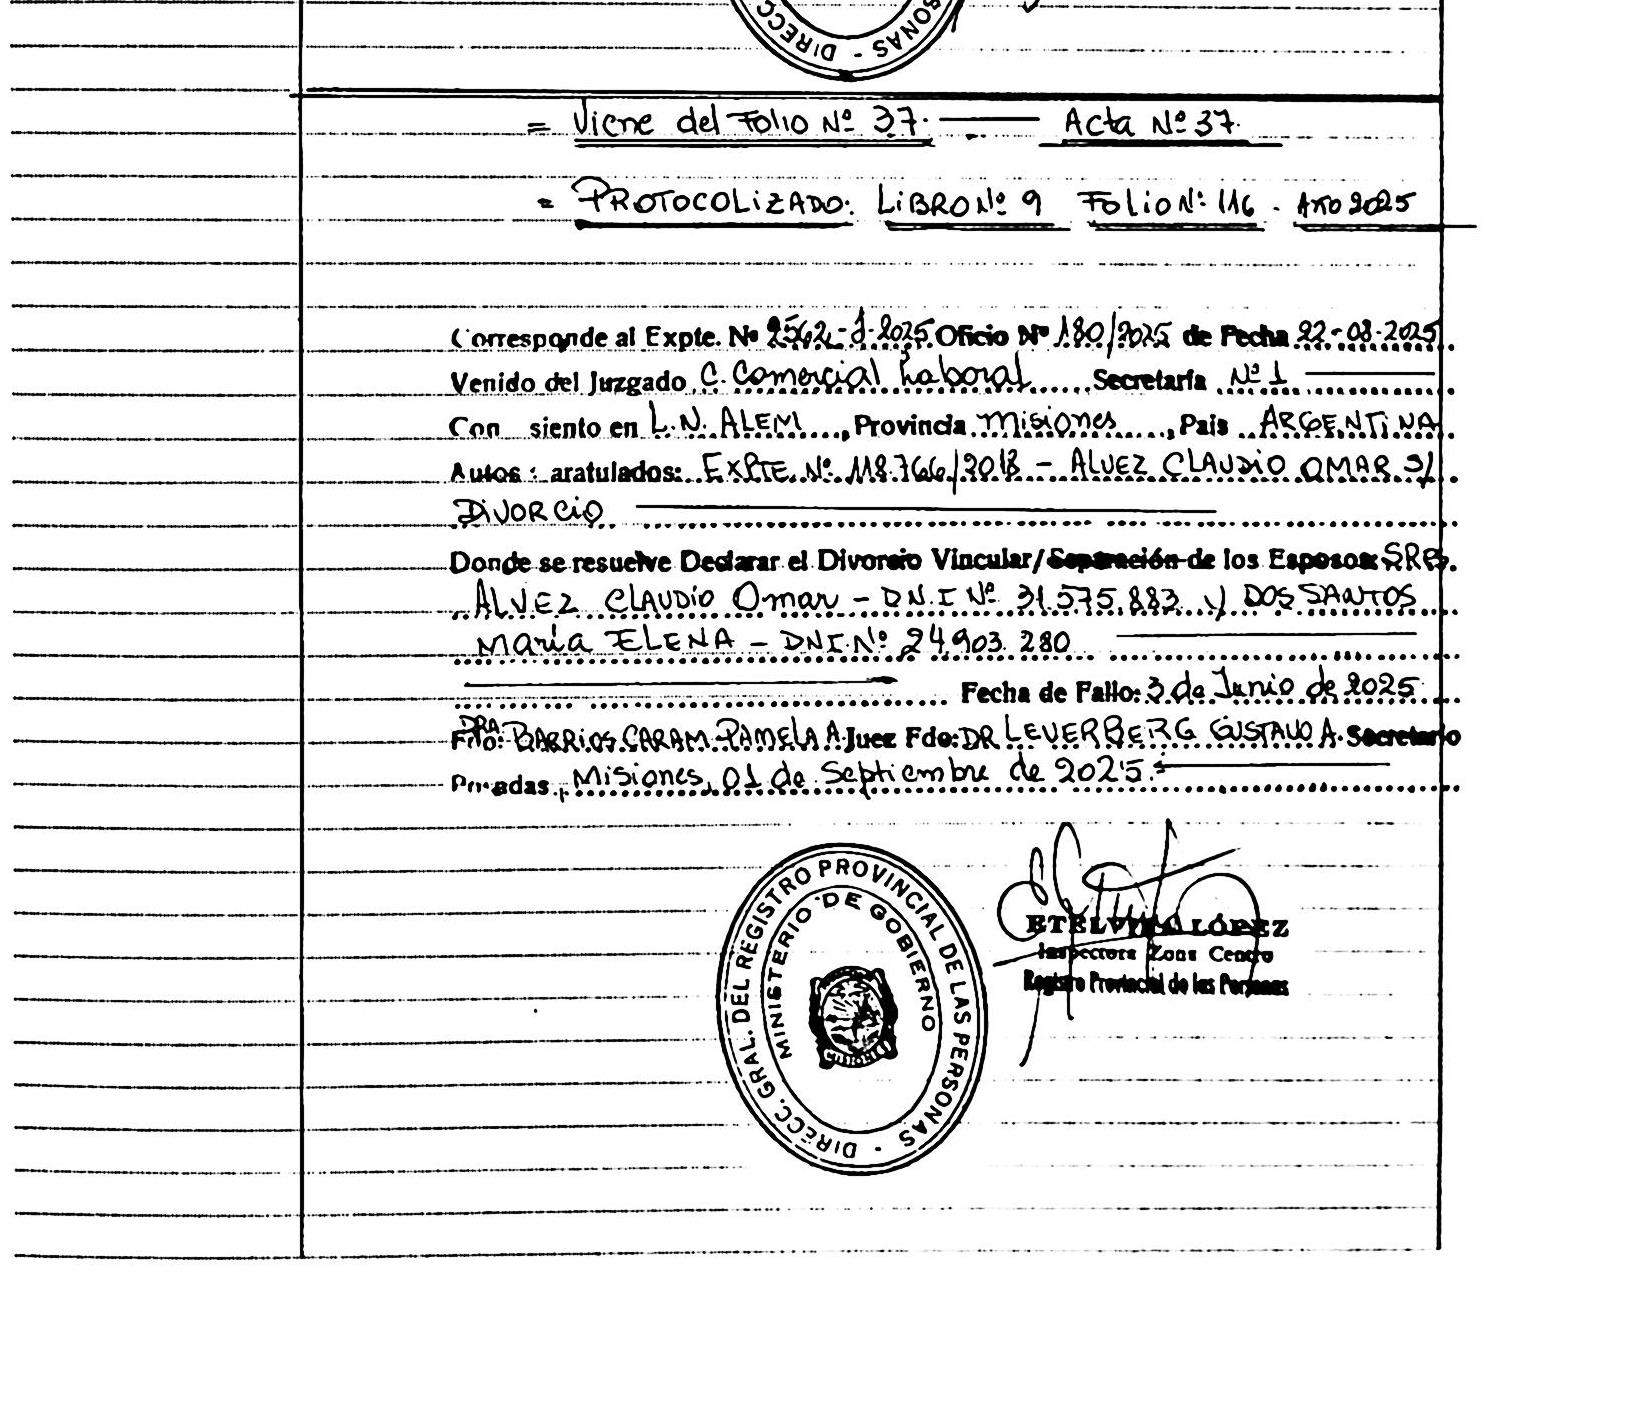 DIRECC
SONAS - DIRECC
= Viene del Folio Nº 37. Acta Nº 37.
= PROTOCOLIZADO: LIBRO Nº 9 Folio Nº 116 - Año 2025
Corresponde al Expte. Nº 2562-J-2025 Oficio Nº 180/2025 de Fecha 22-08-2025
Venido del Juzgado C. Comercial Laboral Secretaría Nº 1
Con siento en L.N. ALEM, Provincia Misiones, País ARGENTINA
Autos: aratulados: EXPTE Nº 118.766/2018 - ALVEZ CLAUDIO OMAR S/
DIVORCIO
Donde se resuelve Declarar el Divorcio Vincular/Separación de los Esposos: SRES.
ALVEZ CLAUDIO Omar - D.N.I Nº 31.575.883 y DOS SANTOS
María ELENA - DNI Nº 24.903.280
Fecha de Fallo: 3 de Junio de 2025
Fdo: DRA BARRIOS CARAM PAMELA A. Juez Fdo: DR LEVERBERG GUSTAVO A. Secretario
Posadas, Misiones, 01 de Septiembre de 2025.
DIRECC. GRAL. DEL REGISTRO PROVINCIAL DE LAS PERSONAS -
MINISTERIO DE GOBIERNO
MISIONES
ETELVINA LÓPEZ
Inspectora Zona Centro
Registro Provincial de las Personas